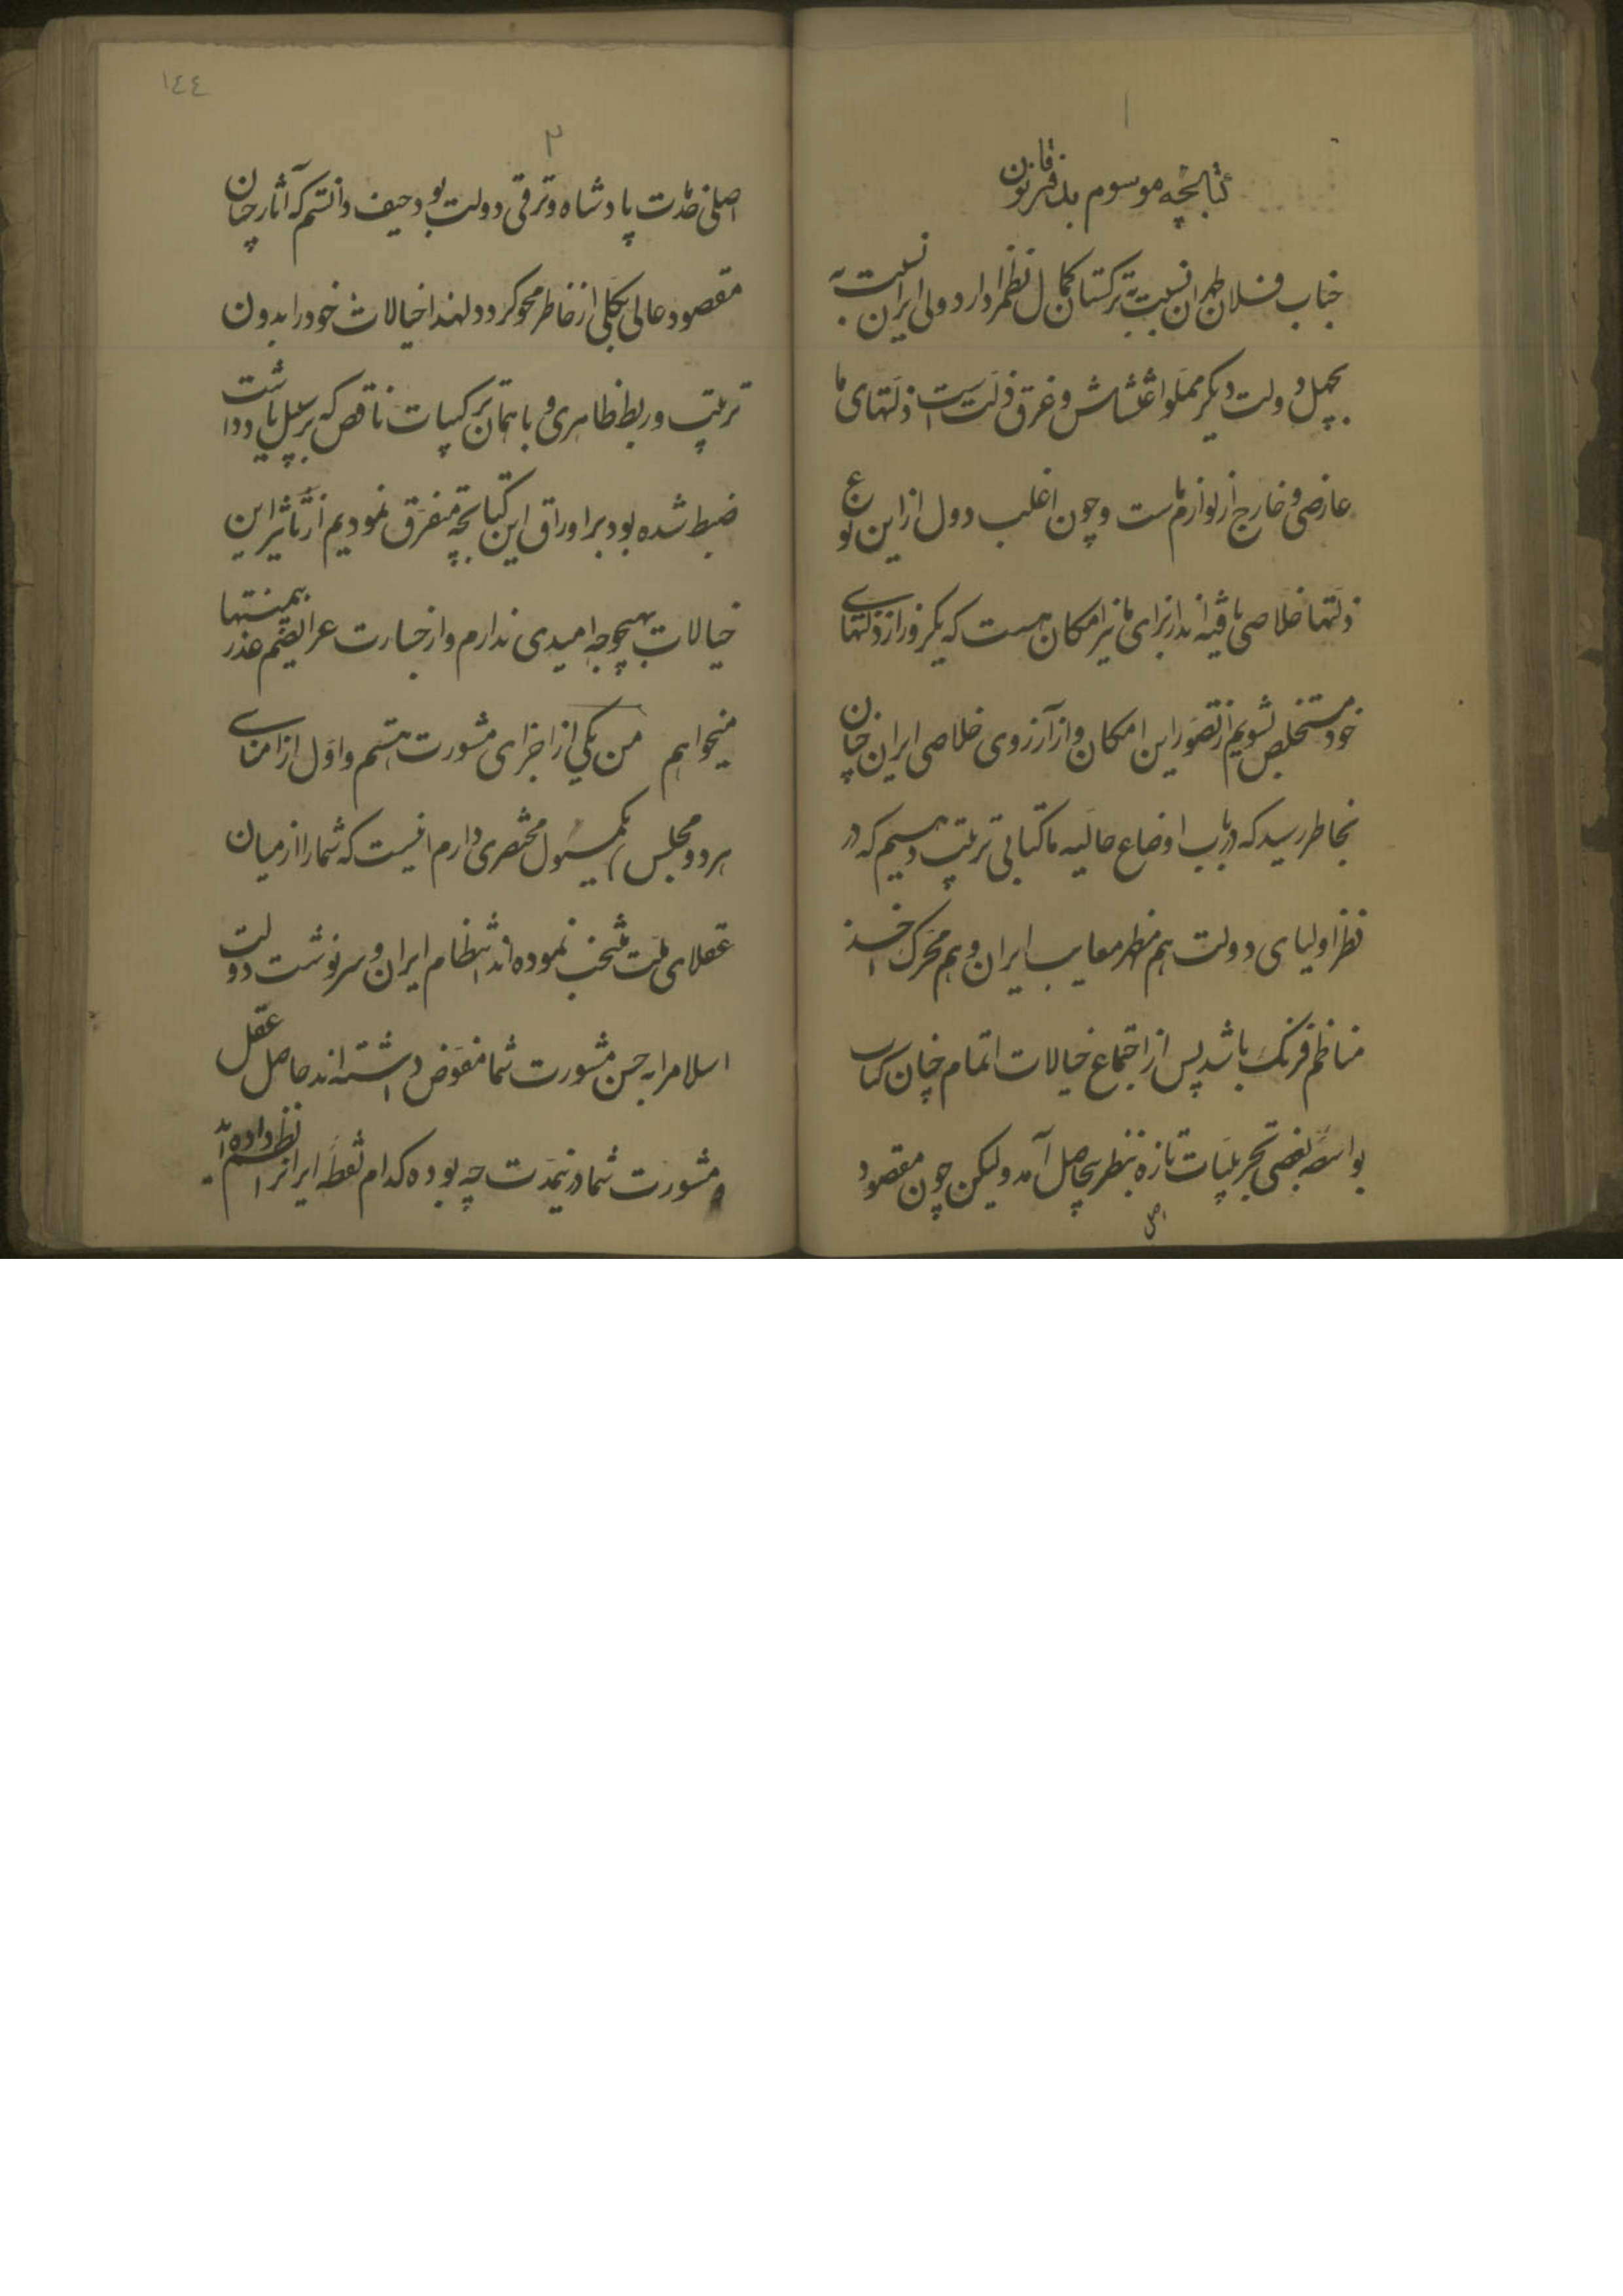 ۱
کتابچه موسوم بدفتر قانون
جناب فلان طهران نسبت بترکستان کمال نظم را دارد ولی ایران نسبت به
چهل دولت دیگر مملو اغتشاش و غرق ذلت است ذلتهای ما
عارضی و خارج از لوازم ماست و چون اغلب دول از این نوع
ذلتها خلاصی یافته‌اند از برای ما نیز امکان هست که یکروز از ذلتهای
خود مستخلص بشویم از تصور این امکان و از آرزوی خلاصی ایران چنان
بخاطر رسید که در باب اوضاع حالیه ما کتابی ترتیب دهیم که در
نظر اولیای دولت هم مظهر معایب ایران و هم محرک اخذ
مناظم فرنک باشد پس از اجتماع خیالات اتمام چنان کتاب
بواسطه بعضی تجربیات تازه بنظر بیحاصل آمد ولیکن چون مقصود
اصلی
۱٤٤
۲
اصلی خدمت پادشاه و ترقی دولت بود حیف دانستم که آثار چنان
مقصود عالی بکلی از خاطر محو کردد لهذا خیالات خود را بدون
ترتیب و ربط ظاهری و با همان ترکیبات ناقص که بر سبیل یادداشت
ضبط شده بود بر اوراق این کتابچه متفرق نمودیم از تأثیر این
خیالات بهیچوجه امیدی ندارم و از جسارت عرایضم بمنتها عذر
میخواهم من یکی از اجزای مشورت هستم و اول از امنای
هر دو مجلس یکمسئول مختصری دارم اینست که شما را از میان
عقلای ملت منتخب نموده‌اند انتظام ایران و سرنوشت دولت
اسلام را به حسن مشورت شما مفوض داشته‌اند حاصل عقل
و مشورت شما در نیمدت چه بوده کدام نقطه ایران را نظم داده‌اید